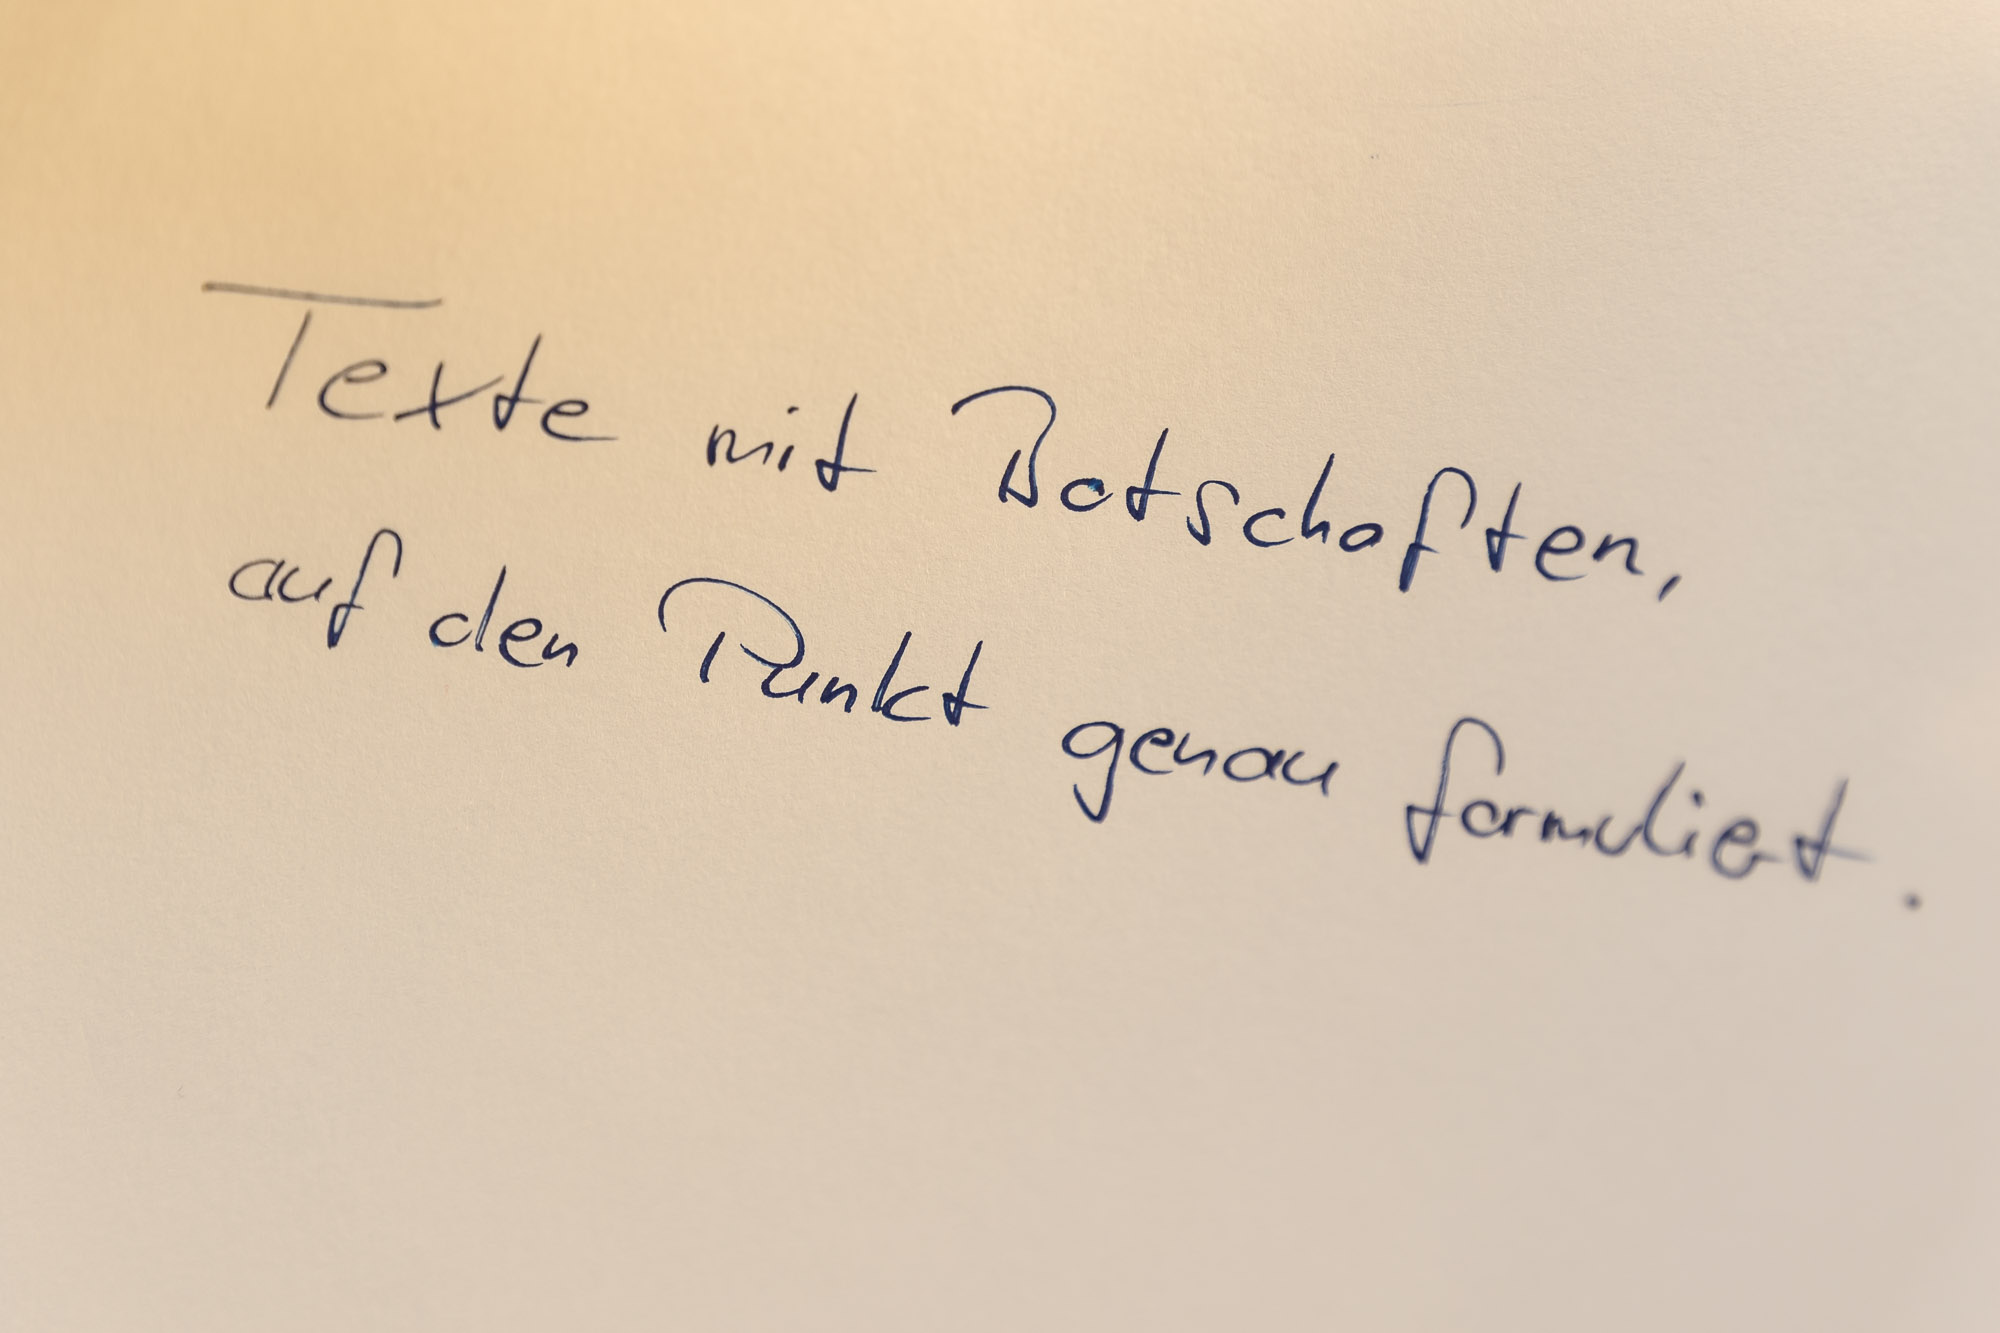 Texte mit Botschaften,
auf den Punkt genau formuliert.